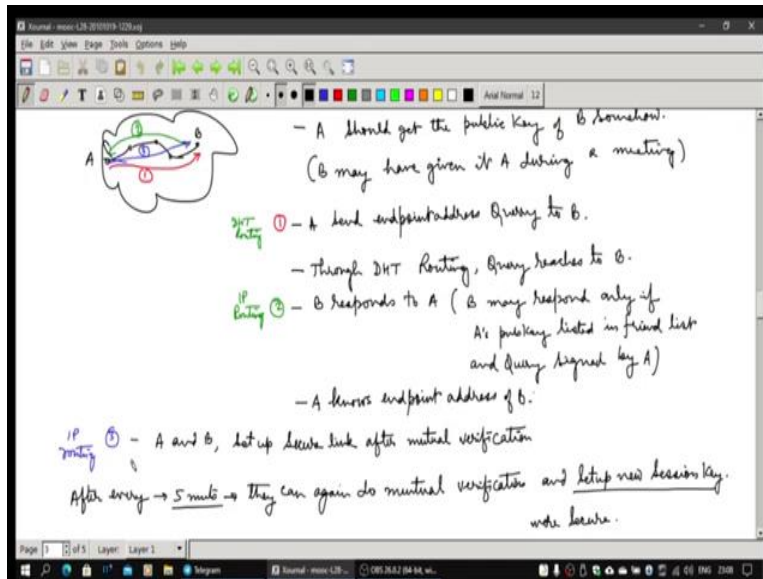 Xournal - mooc-L28-20101019-1229.xoj
File Edit View Page Tools Options Help
Arial Normal 12
A
B
3
3
1
- A should get the public key of B somehow.
(B may have given it A during a meeting)
DHT Routing 1 - A send endpoint address Query to B.
- Through DHT Routing, Query reaches to B.
IP Routing 2 - B responds to A ( B may respond only if
A's pubkey listed in friend list
and Query signed by A)
- A knows endpoint address of B.
IP routing 3 - A and B, Set up Secure link after mutual verification
After every → 5 mnts → they can again do mutual verification and Setup new Session Key.
more secure.
Page 3 of 5 Layer: Layer 1
Telegram
Xournal - mooc-L28-...
OBS 26.0.2 (64-bit, wi...
ENG 23:08